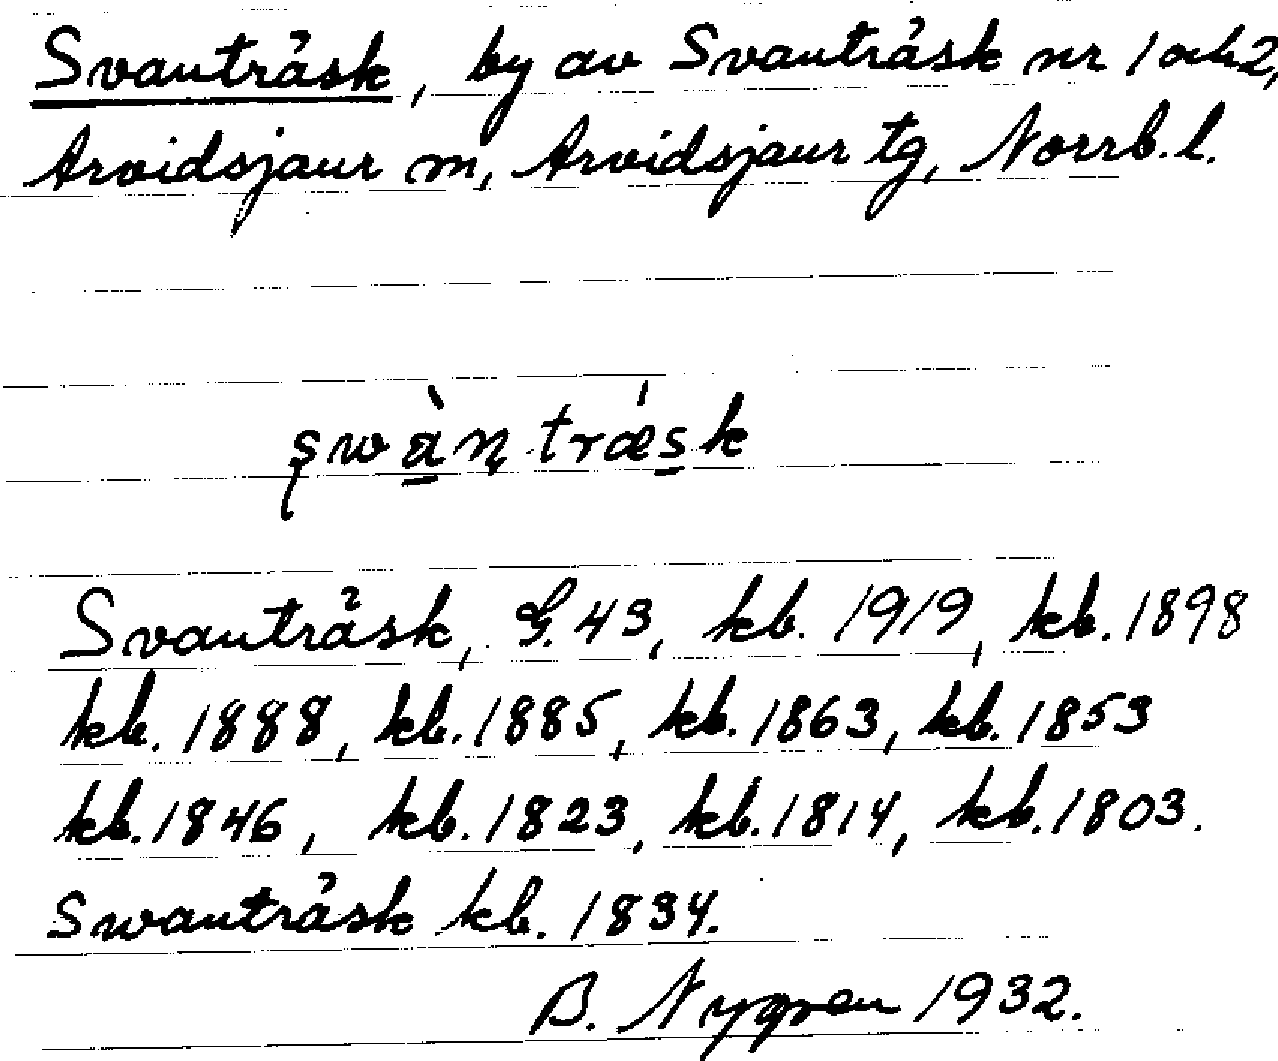 Svanträsk, by av Svanträsk nr 1 och 2,
Arvidsjaur sn, Arvidsjaur tg, Norrb. l.
swàntræ´sk
Svanträsk, G. 43, kb. 1919, kb. 1898
kb. 1888, kb. 1885, kb. 1863, kb. 1853
kb. 1846, kb. 1823, kb. 1814, kb. 1803.
Swanträsk kb. 1834.
B. Nygren 1932.